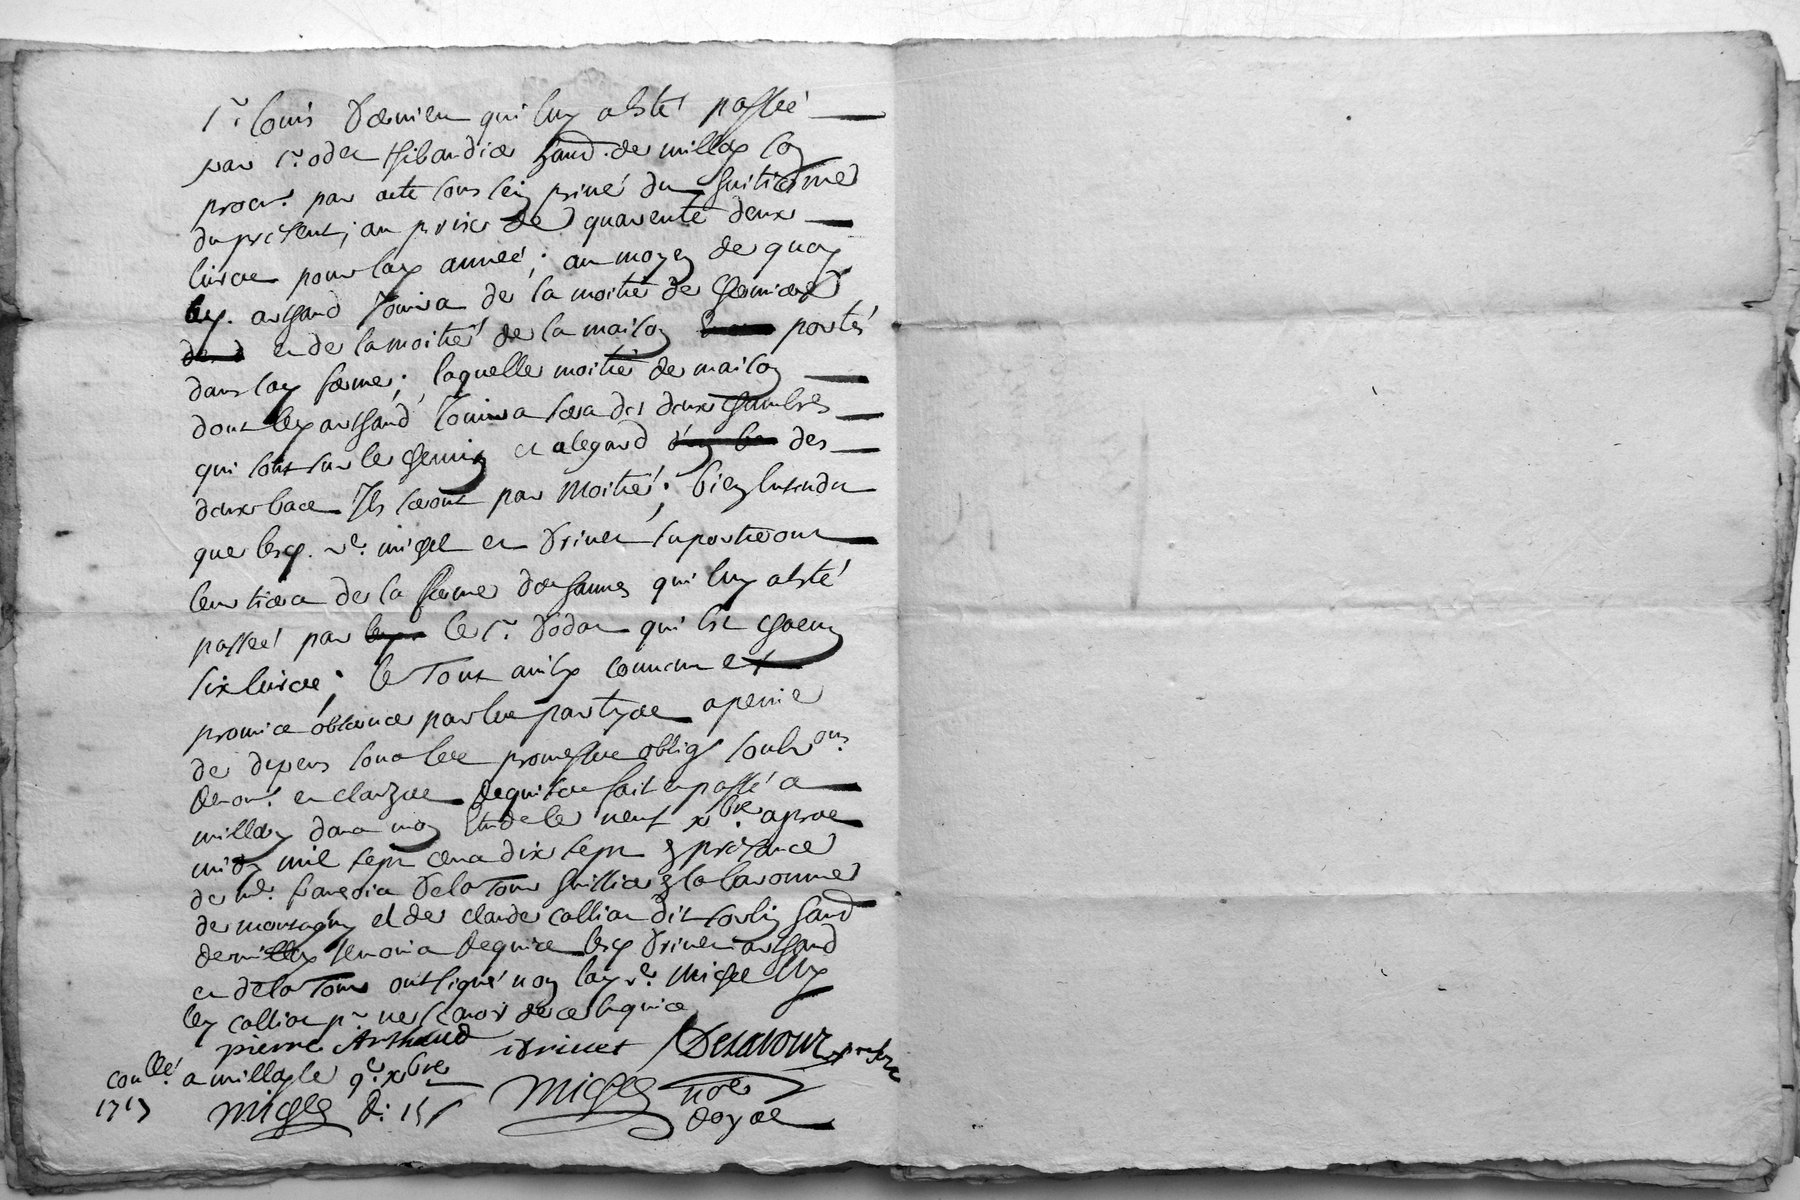 Sr. Louis Dernieu qui luy a esté passée
par Sr. odet Thibaudier hand. de millay son
procr. par acte sous sein privé du huitieme
du present, au prix de quarente deux
livres pour lad année; au moyen de quoy
led. arthaud Jouira de la moitié de
et de la moitié de la maison portés
dans lad ferme; laquelle moitié de maison
dont led arthaud Jouira sera des deux chambres
qui sont sur le chemin et a legard des
deux bace Ils seront par Moitié; bien Entendu
que lesd. ve. michel et Drivet suporteront
leur tiers de la ferme qui luy a esté
passée par le Sr. Dodat qui Est chacun
six livres; le Tout ainsy convenu et
promis observer par les partyes a peine
de depens sous les promesses oblig soubons.
Renont. et clauzes Requises fait et passé a
millay dans mon Etude le neuf xbre. apres
midy mil sept cens dix sept En presence
de Me. françois Delatour huissier En la baronnie
de montagny et de claude collian dit hand
de millay temoins Requis lesd Drivet arthaud
et delatour ont signé non lad ve. Michel Ny
led collian pr. ne sçavoir de ce Enquis
pierre Arthaud Drivet Delatour present
conllé. a millay le 9e. xbre
1717 Michel R: 15s Michel nore
Royal